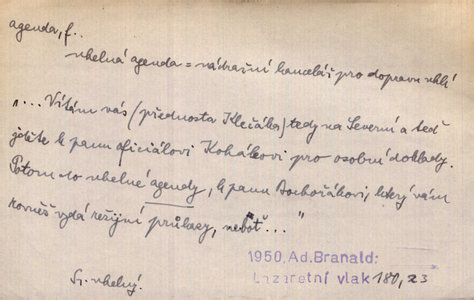 agenda, f..
uhelná agenda = nádražní kancelář pro dopravu uhlí
"... Vítám vás (přednosta Klečáka) tedy na Severní a teď
jděte k panu oficiálovi Kohákovi pro osobní doklady.
Potom do uhelné agendy, k panu Bochořákovi, který vám
rovněž vydá režijní průkazy, neboť..."
Sr. uhelný.
1950, Ad. Branald:
Lazaretní vlak 180, 23